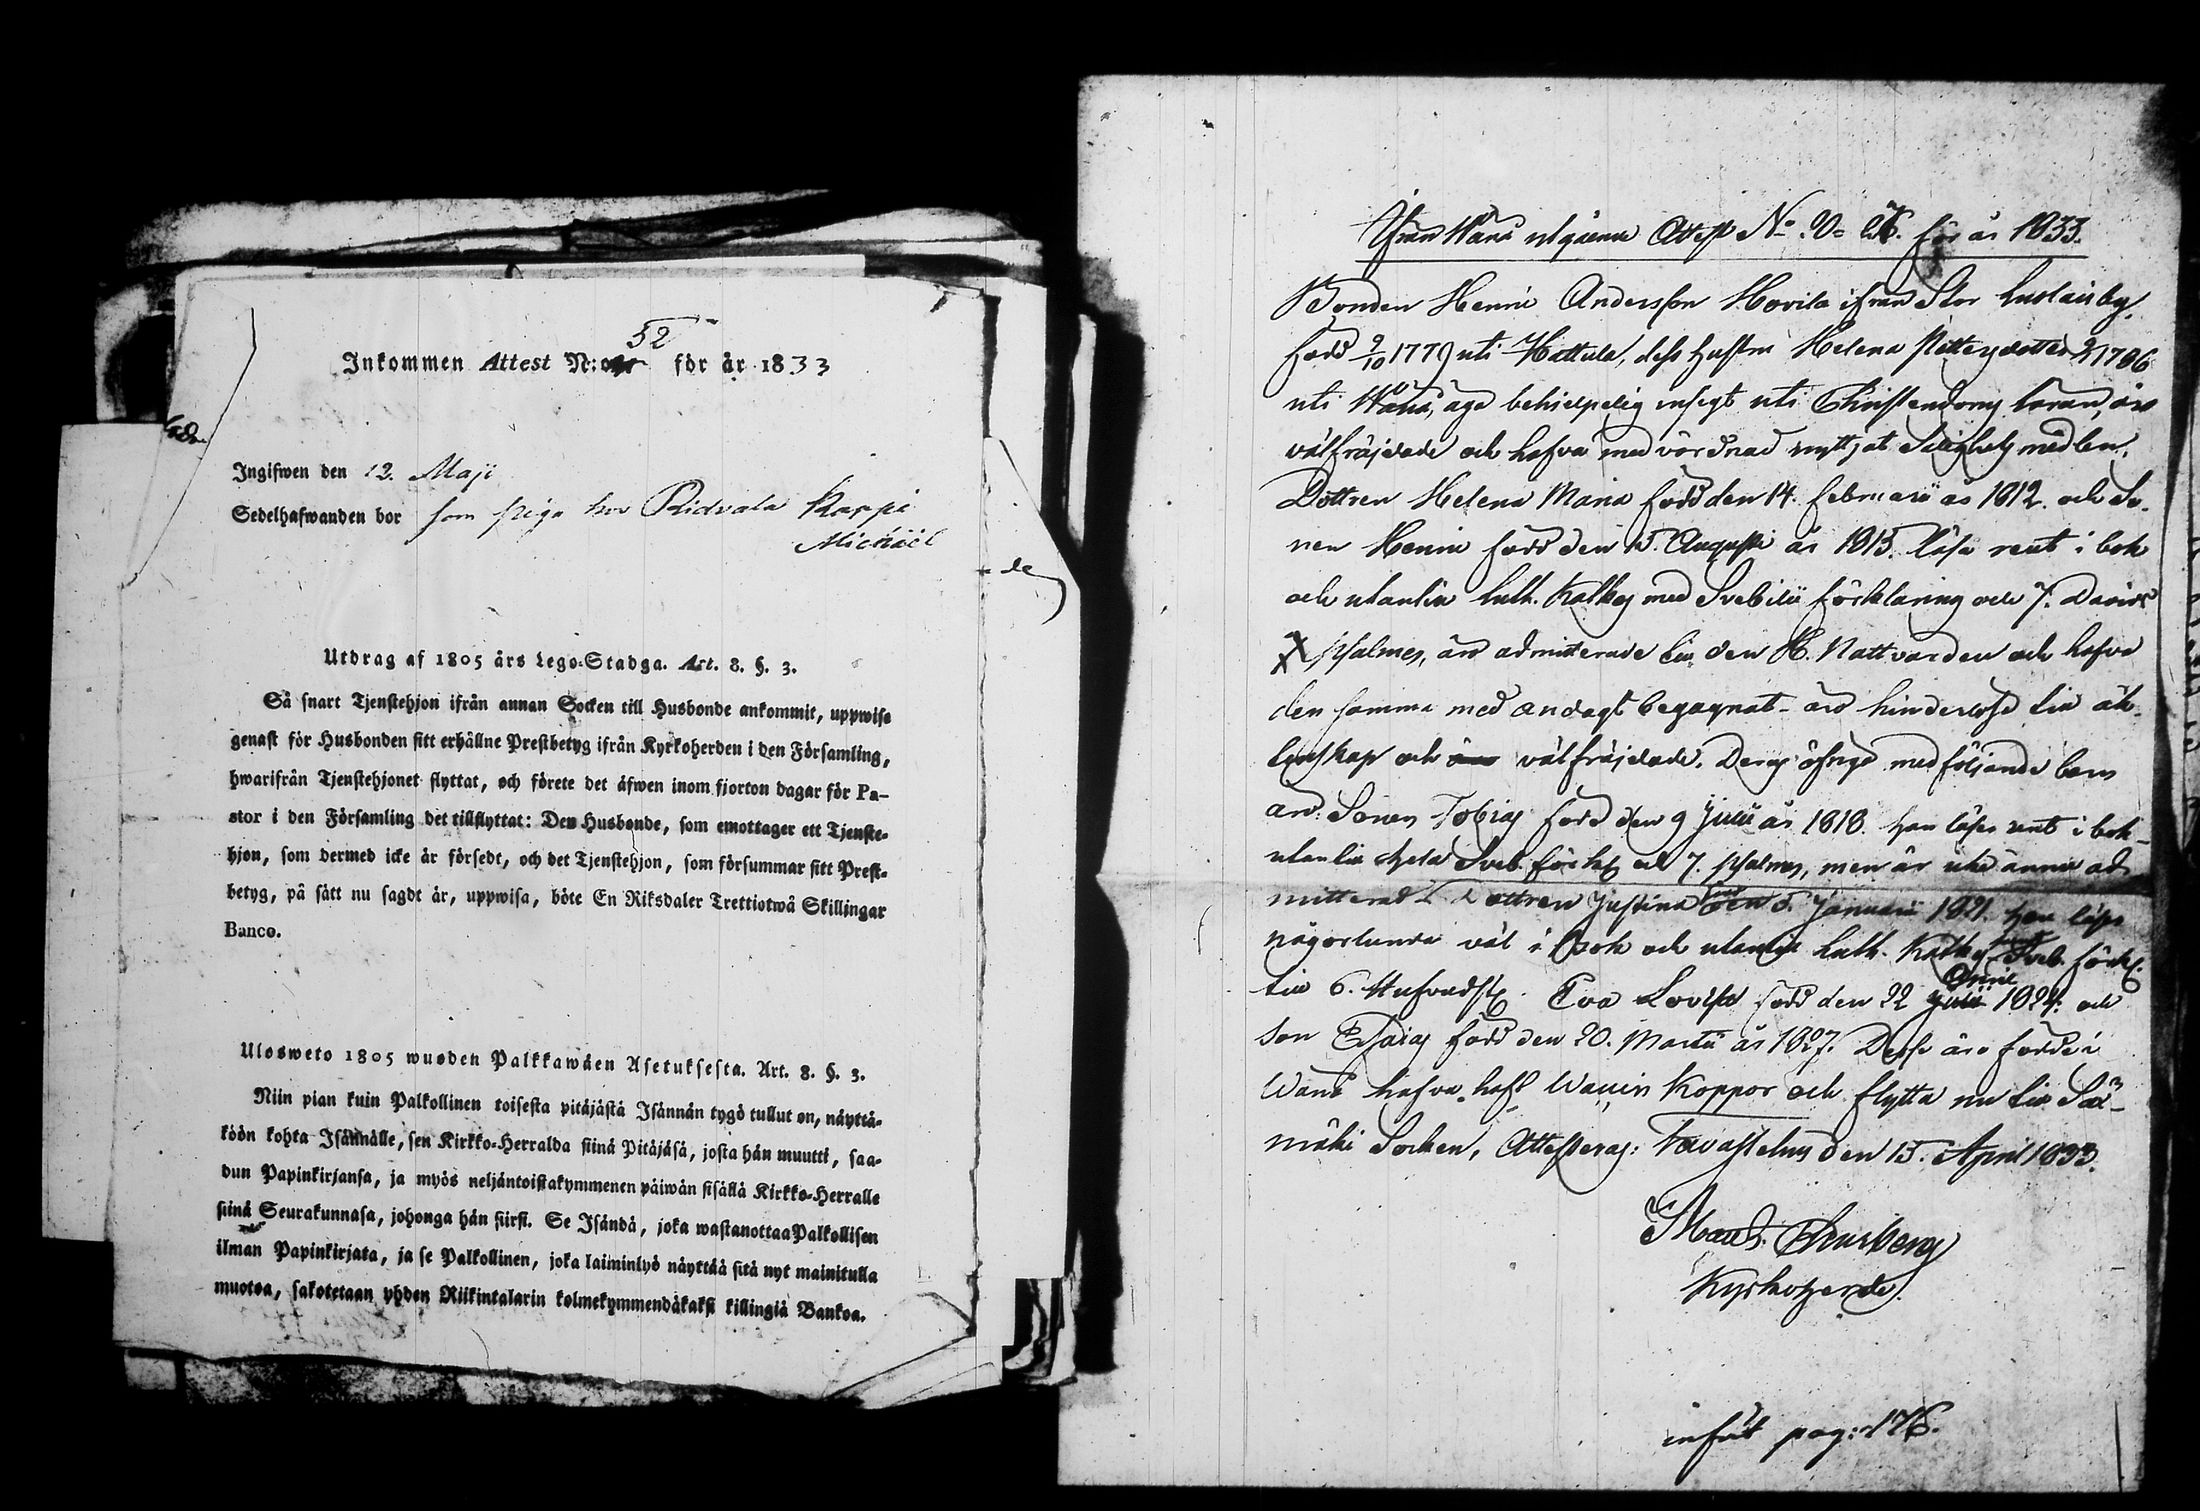 Inkommen Attest N:o 52 för år 1833
Ingifwen den 12. Maji
Sedelhafwanden bor som piga hos Ridvala Kappi
Michaël
Utdrag af 1805 års Lego-Stadga. Art. 8. §. 3.
Så snart Tjenstehjon ifrån annan Socken till Husbonde ankommit, uppwise
genast för Husbonden sitt erhållne Prestbetyg ifrån Kyrkoherden i den Församling,
hwarifrån Tjenstehjonet flyttat, och förete det äfwen inom fjorton dagar för Pa-
stor i den Församling det tillflyttat: Den Husbonde, som emottager ett Tjenste-
hjon, som dermed icke är försedt, och det Tjenstehjon, som försummar sitt Prest-
betyg, på sätt nu sagdt är, uppwisa, böte En Riksdaler Trettiotwå Skillingar
Banco.
Ulosweto 1805 wuoden Palkkawäen Asetuksesta. Art. 8. §. 3.
Niin pian kuin Palkollinen toisesta pitäjästä Isännän tygö tullut on, näyttä-
köön kohta Isännälle, sen Kirkko-Herralda siinä Pitäjäsä, josta hän muutti, saa-
dun Papinkirjansa, ja myös neljäntoistakymmenen päiwän sisällä Kirkko-Herralle
siinä Seurakunnasa, johonga hän siirsi. Se Isändä, joka wastanottaa Palkollisen
ilman Papinkirjata, ja se Palkollinen, joka laiminlyö näyttää sitä nyt mainitulla
muotoa, sakotetaan yhden Riikintalarin kolmekymmendäkaksi killingiä Bankoa.
Ifrån Wånå utgående Attest N:o för år 1833.
Bonden Henric Andersson Hovila ifrån Stor Luolais by,
född 9/10 1779 uti Hattula, dess hustru Helena Pettersdotter 1786
uti Wånå, äga behjelpelig insigt uti Christendoms läran, äro
välfräjdade och hafva med vördnad nyttjat Salighets medlen.
Dottren Helena Maria född den 14. Februarii år 1812. och So-
nen Henric född den 15. Augusti år 1815. läsa rent i bok
och utantill Luth. Kathes med Svebilii förklaring och 7. Davids
Psalmer, äro admitterade till den H. Nattvarden och hafva
den samma med andagt begagnat - äro hinderlöse till äk-
tenskap och välfräjdade. Deras öfrige medföljande barn
äro: Sonen Tobias född den 9 Julii år 1818. han läser rent i bok
utantill hela Sveb. förkl och 7. psalmer, men är icke ännu ad-
mitterad Dottren Justina född den 5. Januarii 1821. hon läser
någorlunda väl i bok och utantill Luth. Kathes med Sveb. förkl.
till 6. Hufvudst. Eva Lovisa född den 22 Aprill 1824. och
son Esaias född den 20. Martii år 1827. Desse äro födde i
Wånå hafva haft Waccin Koppor och flytta nu till Sää-
mäki Socken, Attesteras: Tavastehus den 15. April 1833.
Kyrkoherde.
infört pag: 176.